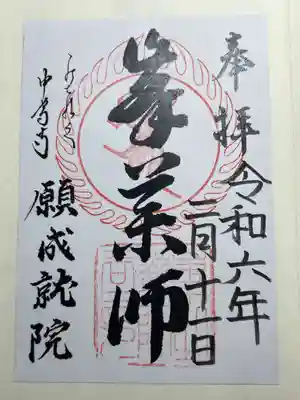 奉拝
令和六年
二月十一日
峯薬師
みちのく
中尊寺
願成就院